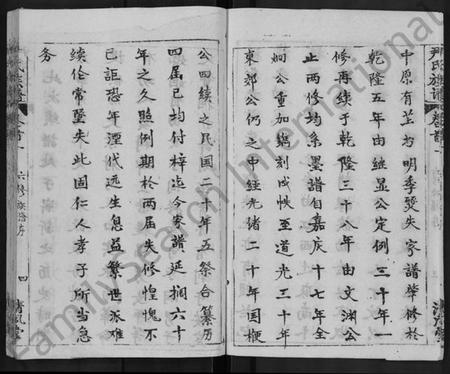 尹氏族譜
卷首一
清風堂
中原有並为明季燹失家譜肇修於
乾隆五年由继显公定例三十年一
修再续于乾隆三十八年由文渊公
止两修均系墨譜自嘉庆十七年全
炯公重加镌刻成帙至道光三十年
東郊公仍之中经光绪二十年国梗
公四续之民国二十年五祭合纂历
四届已均付梓迄今家譜延搁六十
年之久照例期於两届失修惶愧不
已詎恐年湮代远生息益繁世派难
续伦常墜失此固仁人孝子所当急
务
族譜
卷首一
六修族譜序
四
清風堂
Family Search International